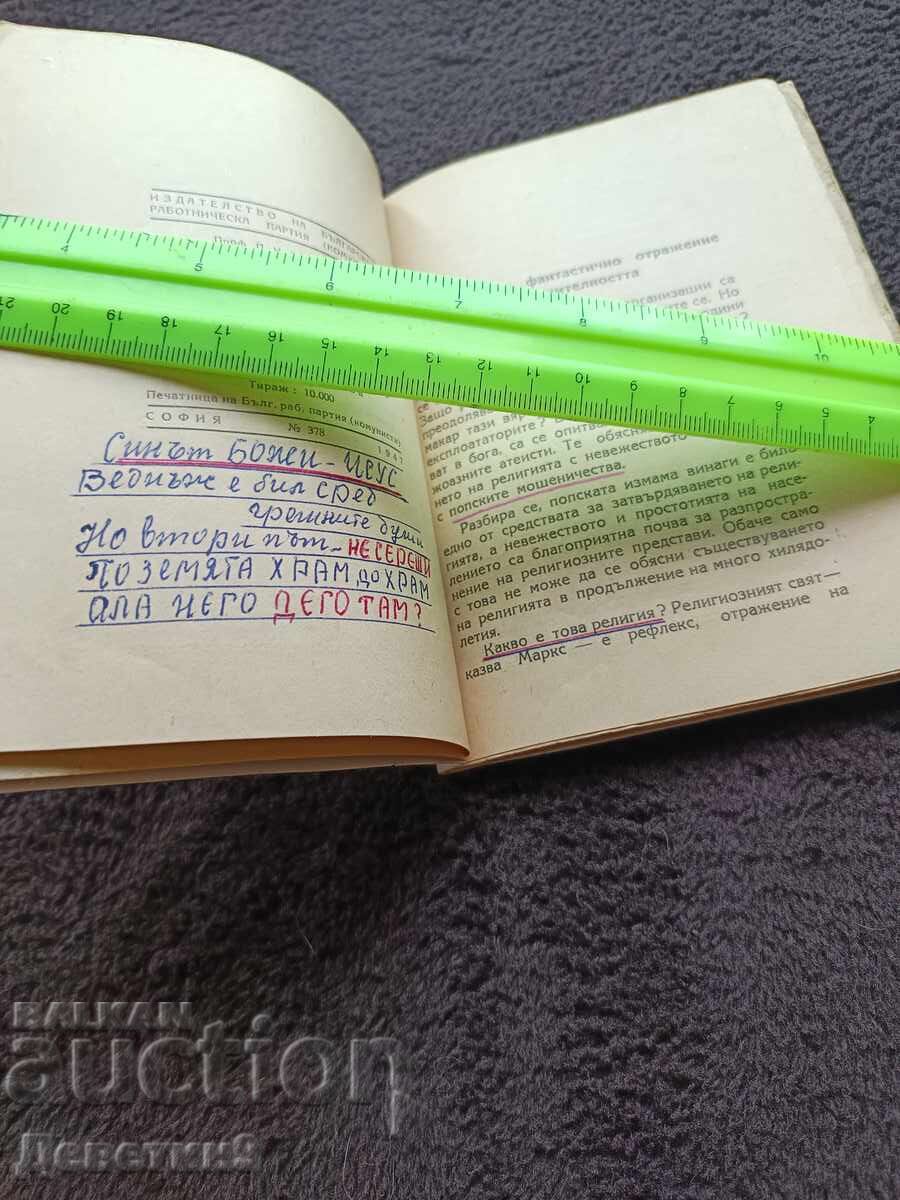 ИЗДАТЕЛСТВО НА
РАБОТНИЧЕСКА ПАРТИЯ
4 5 6 7 8 9 10
21 20 19 18 17 16 15 14 13 12 11 10 9 8 7 6 5 4
Тираж: 10.000
Печатница на Бълг. раб. партия (комунисти)
СОФИЯ № 378 1947
Синът Божи – Исус
Веднъж е бил сред
грешните души
Но втори път – НЕ СЕ РЕШИ
ПО ЗЕМЯТА ХРАМ ДО ХРАМ
АЛА НЕГО ДЕГО ТАМ?
фантастично отражение
организации са
се. Но
Защо
преодоляв
макар тази вяр
експлоататорите?
ват в бога, са се опитв
жоазните атеисти. Те обясн
нето на религията с невежеството
с попските мошеничества.
Разбира се, попската измама винаги е било
едно от средствата за затвърдяването на рели-
гията, а невежеството и простотията на насе-
лението са благоприятна почва за разпростра-
нение на религиозните представи. Обаче само
с това не може да се обясни съществуването
на религията в продължение на много хилядо-
летия.
Какво е това религия? Религиозният свят —
казва Маркс — е рефлекс, отражение на
BALKAN
auction
Деветки9